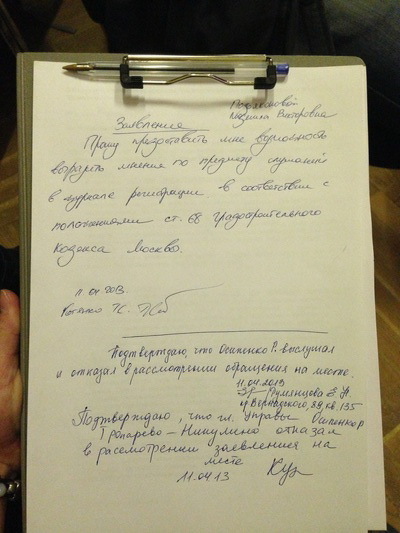 Людмила Викторовна
Заявление
Прошу предоставить мне возможность
выразить мнение по предмету слушаний
в журнале регистрации в соответствии с
положениями ст. 68 Градостроительного
Кодекса Москвы.
11.04.2013.
Подтверждаю, что Осипенко Р. выслушал
и отказал в рассмотрении обращения на месте.
11.04.2013
Румянцева Е. Н.
пр Вернадского, 89, кв. 135
Подтверждаю, что гл. управы Осипенко Р
Тропарево-Никулино отказал
в рассмотрении заявления на
месте
11.04.13